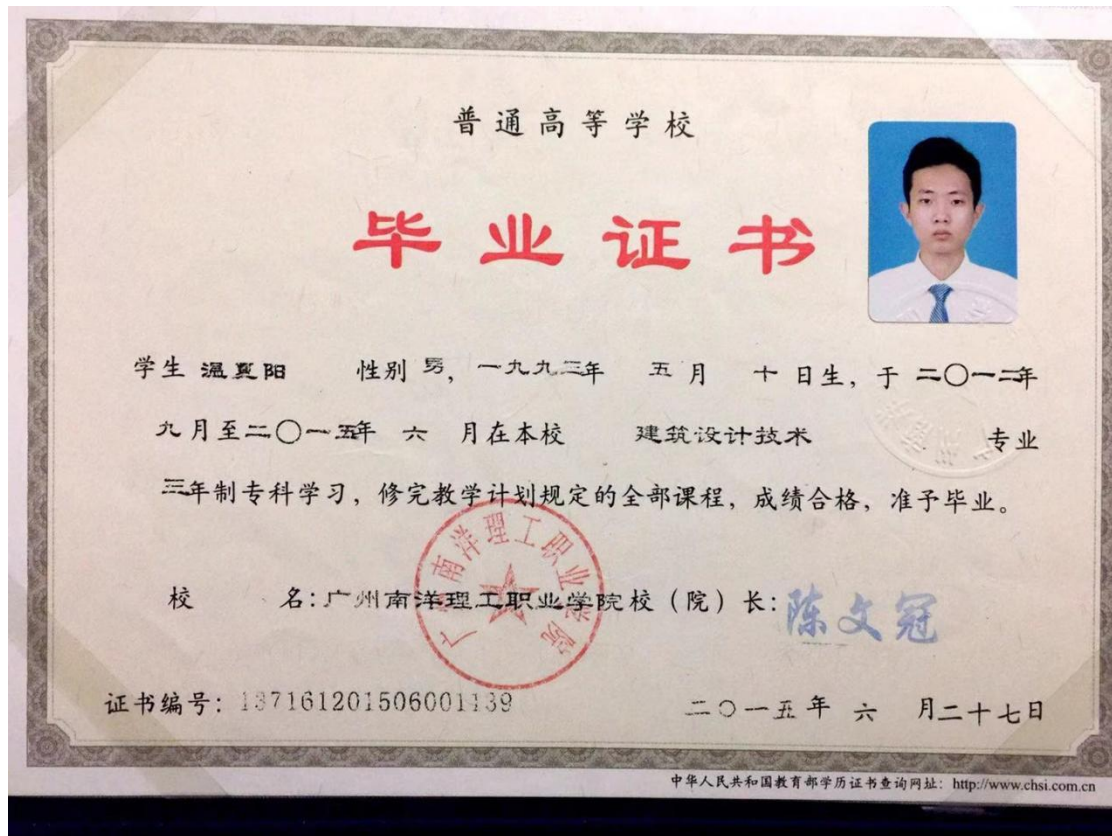 普通高等学校
毕业证书
学生 温夏阳 性别 男，一九九三年 五 月 十 日生，于 二〇一二年
九月至二〇一五年 六 月在本校 建筑设计技术 专业
三年制专科学习，修完教学计划规定的全部课程，成绩合格，准予毕业。
校 名：广州南洋理工职业学院校（院）长：陈文冠
广州南洋理工职业学院
证书编号：137161201506001139 二〇一五年 六 月二十七日
中华人民共和国教育部学历证书查询网址：http://www.chsi.com.cn